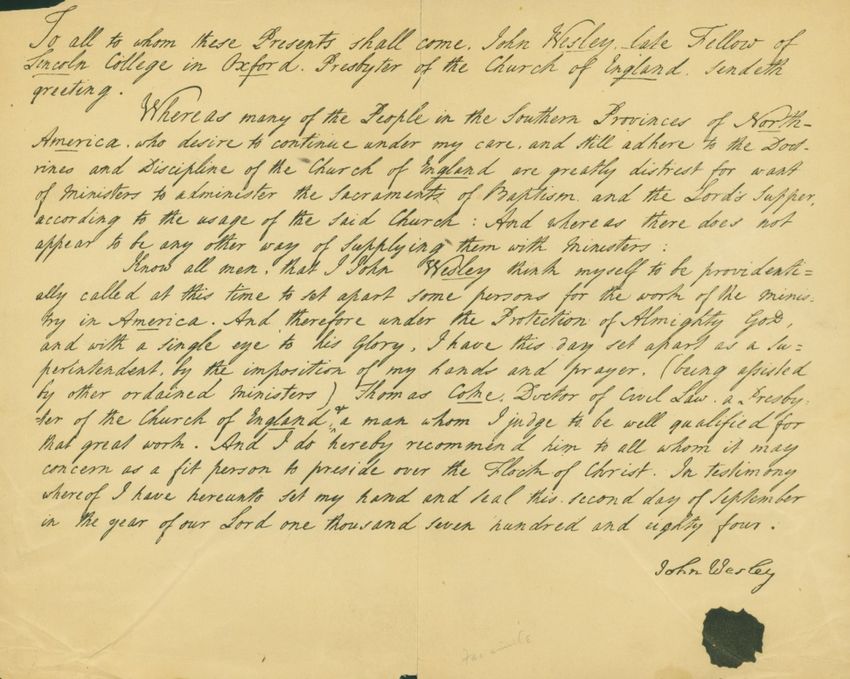 To all to whom these Presents shall come, John Wesley late Fellow of
Lincoln College in Oxford, Presbyter of the Church of England, sendeth
greeting.
Whereas many of the People in the Southern Provinces of North-
America, who desire to continue under my care, and still adhere to the Doct-
rines and Discipline of the Church of England are greatly distrest for want
of Ministers to administer the Sacraments of Baptism and the Lord's Supper,
according to the usage of the said Church: And whereas there does not
appear to be any other way of supplying them with Ministers:
Know all men, that I John Wesley think myself to be providenti=
ally called at this time to set apart some persons for the work of the minis-
try in America. And therefore under the Protection of Almighty God,
and with a single eye to his Glory, I have this day set apart as a Su=
perintendent, by the imposition of my hands and prayer, (being assisted
by other ordained Ministers) Thomas Coke, Doctor of Civil Law, a Presby-
ter of the Church of England, & a man whom I judge to be well qualified for
that great work. And I do hereby recommend him to all whom it may
concern as a fit person to preside over the Flock of Christ. In testimony
whereof I have hereunto set my hand and seal this second day of September
in the year of our Lord one thousand seven hundred and eighty four.
John Wesley
Facsimile